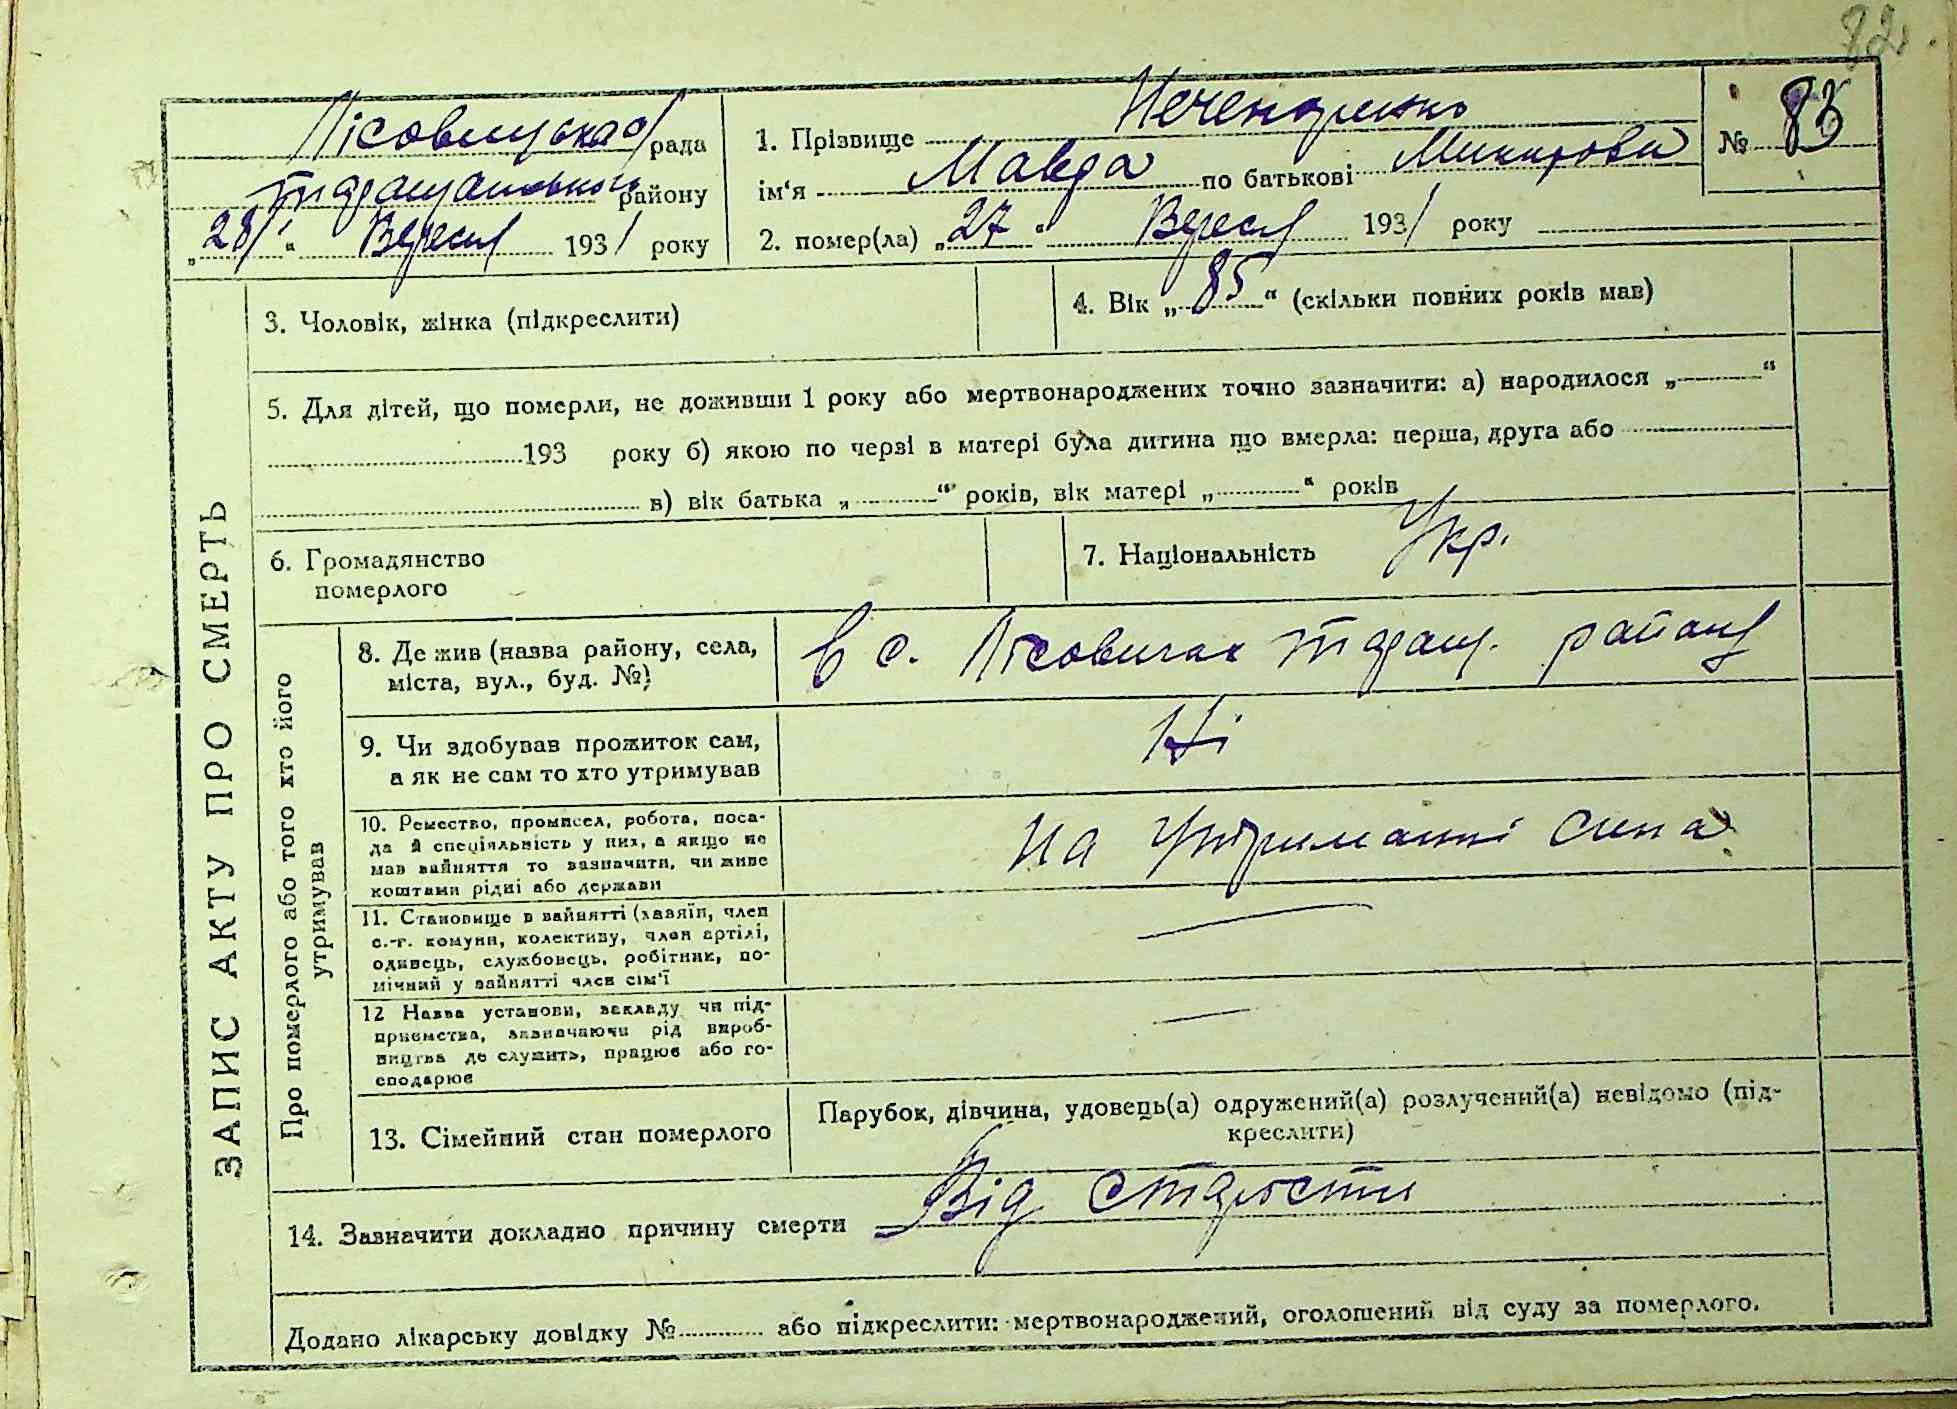 82.
Лісовицька рада
Таращанського району
„28“ Вересня 1931 року
1. Прізвище
№ 83
ім'я по батькові
2. помер(ла) „27“ Вересня 1931 року
ЗАПИС АКТУ ПРО СМЕРТЬ
3. Чоловік, жінка (підкреслити)
4. Вік „85“ (скільки повних років мав)
5. Для дітей, що померли, не доживши 1 року або мертвонароджених точно зазначити: а) народилося „ “
193 року б) якою по черзі в матері була дитина що вмерла: перша, друга або
в) вік батька „ “ років, вік матері „ “ років
6. Громадянство
померлого
7. Національність Укр.
Про померлого або того хто його
утримував
8. Де жив (назва району, села,
міста, вул., буд. №)
в с. Лісовичах Таращ. району
9. Чи здобував прожиток сам,
а як не сам то хто утримував
Ні
10. Ремество, промисел, робота, поса-
да й спеціяльність у них, а якщо не
мав зайняття то зазначити, чи живе
коштами рідні або держави
На утриманні сина
11. Становище в зайнятті (хазяїн, член
с.-г. комуни, колективу, член артілі,
одинець, службовець, робітник, по-
мічний у зайнятті член сім'ї
12 Назва установи, закладу чи під-
приємства, зазначаючи рід вироб-
ництва де служить, працює або го-
сподарює
13. Сімейний стан померлого
Парубок, дівчина, удовець(а) одружений(а) розлучений(а) невідомо (під-
креслити)
14. Зазначити докладно причину смерти Від старости
Додано лікарську довідку № або підкреслити: мертвонароджений, оголошений від суду за померлого.